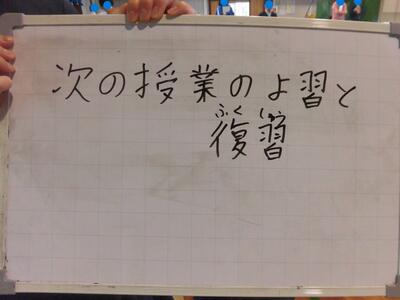 次の授業のよ習と
ふくしゅう
復習